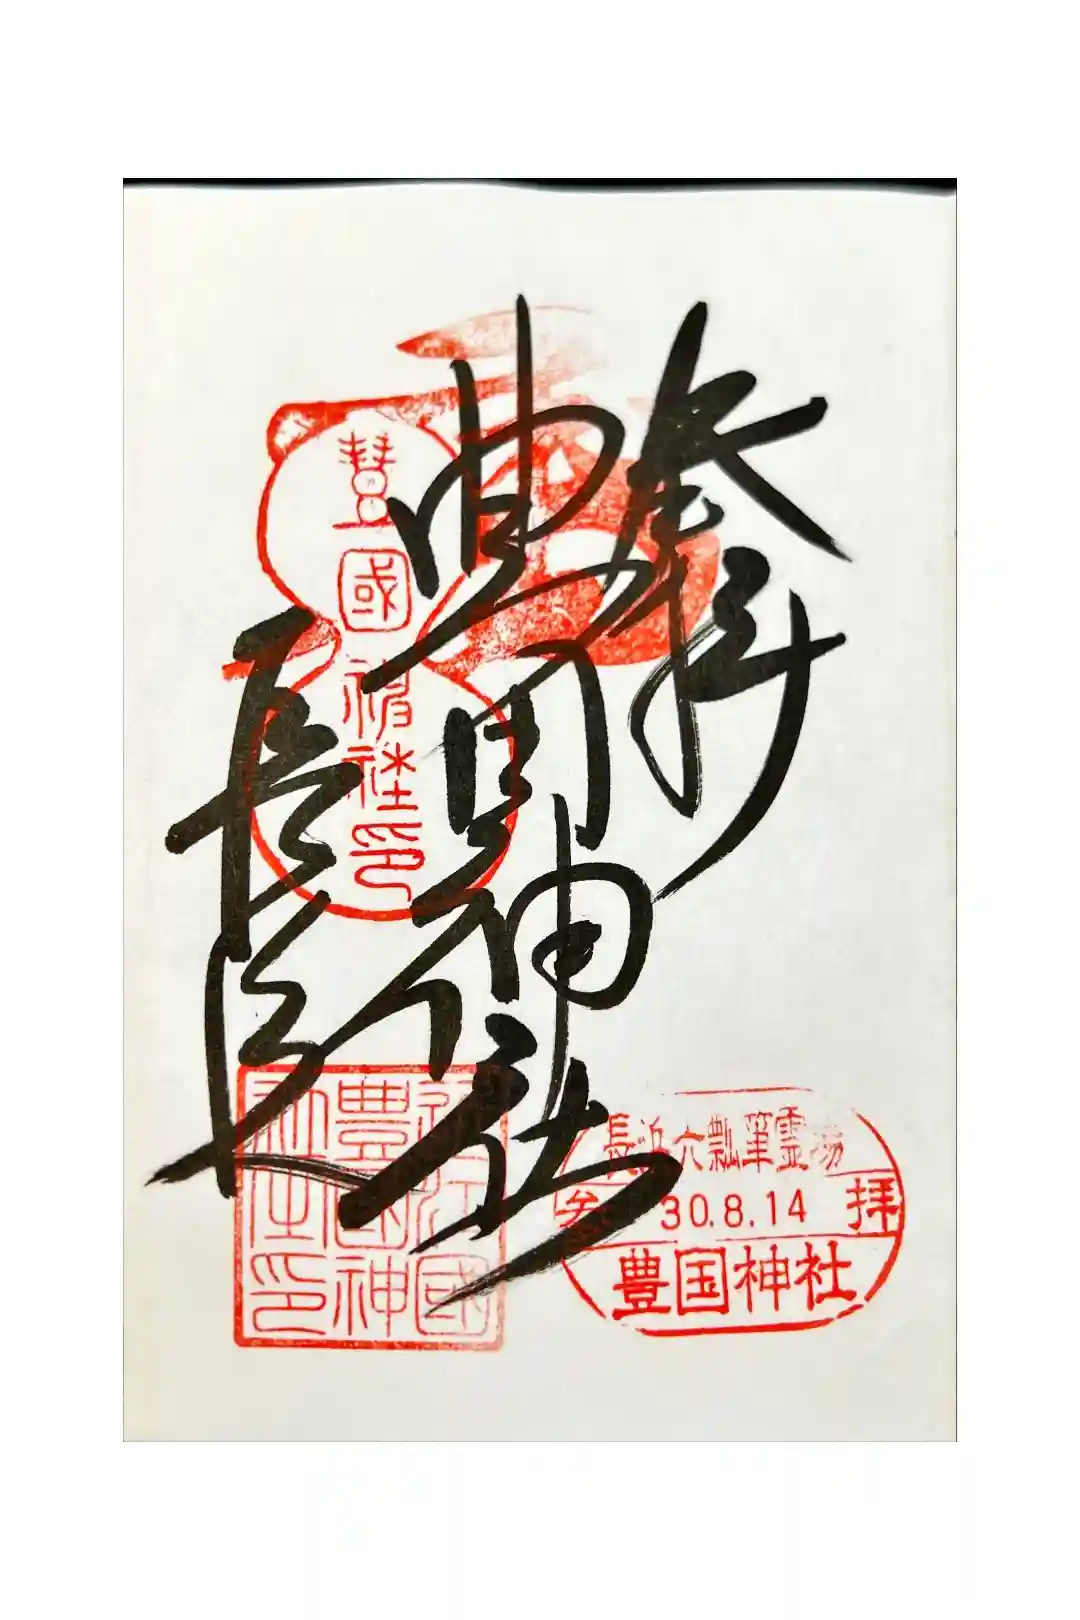 奉拝
豊国神社
長浜
豊國神社印
近江國
豊國神
社之印
長浜六瓢箪霊場
参 30.8.14 拝
豊国神社